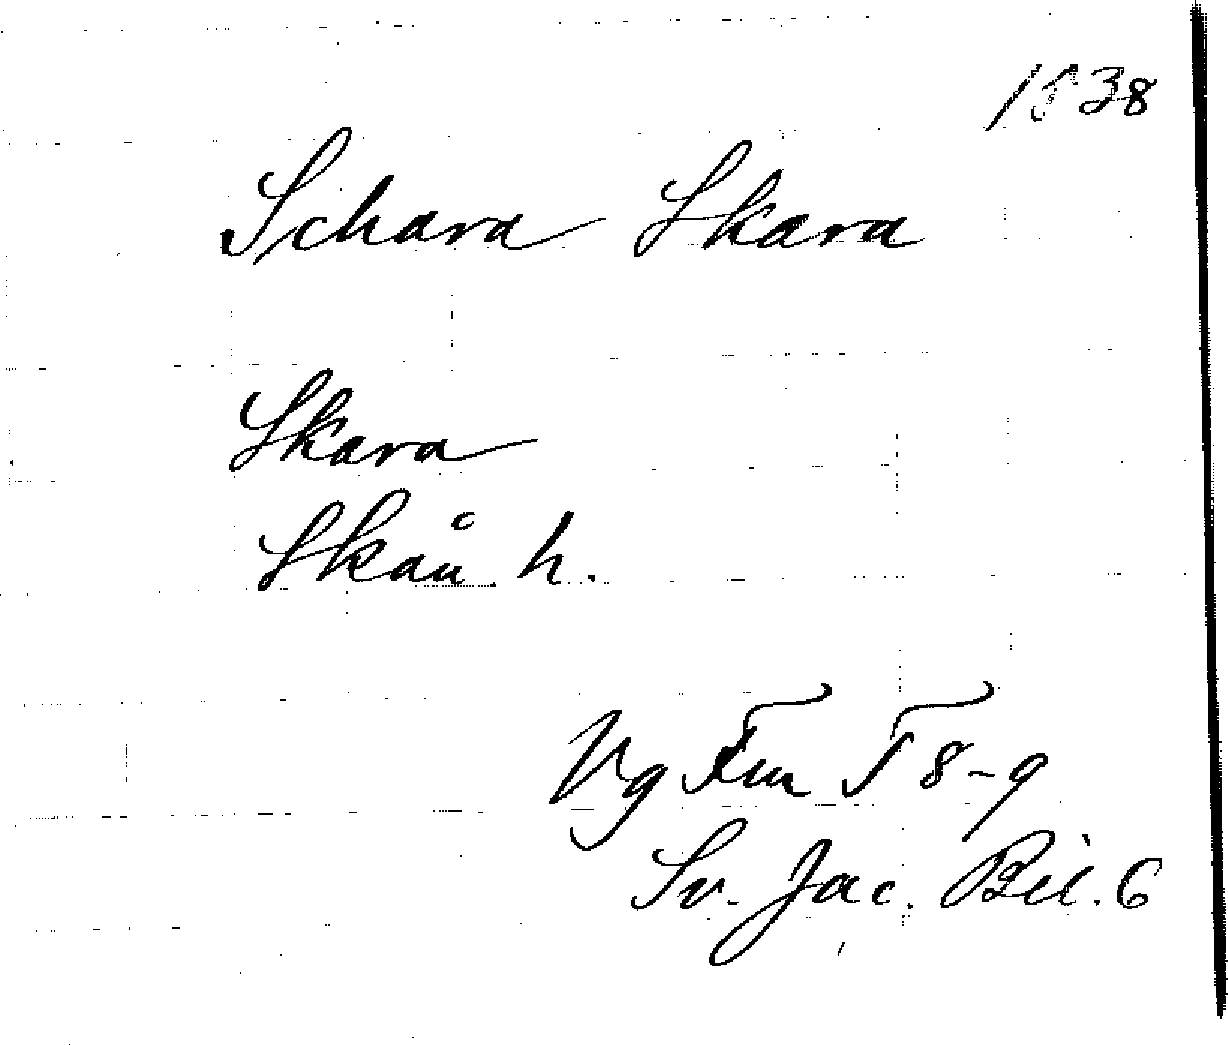 1538
Schara Skara
Skara
Skån. h.
Vg Fur F 8-9
Sv. Jac. Bil. 6